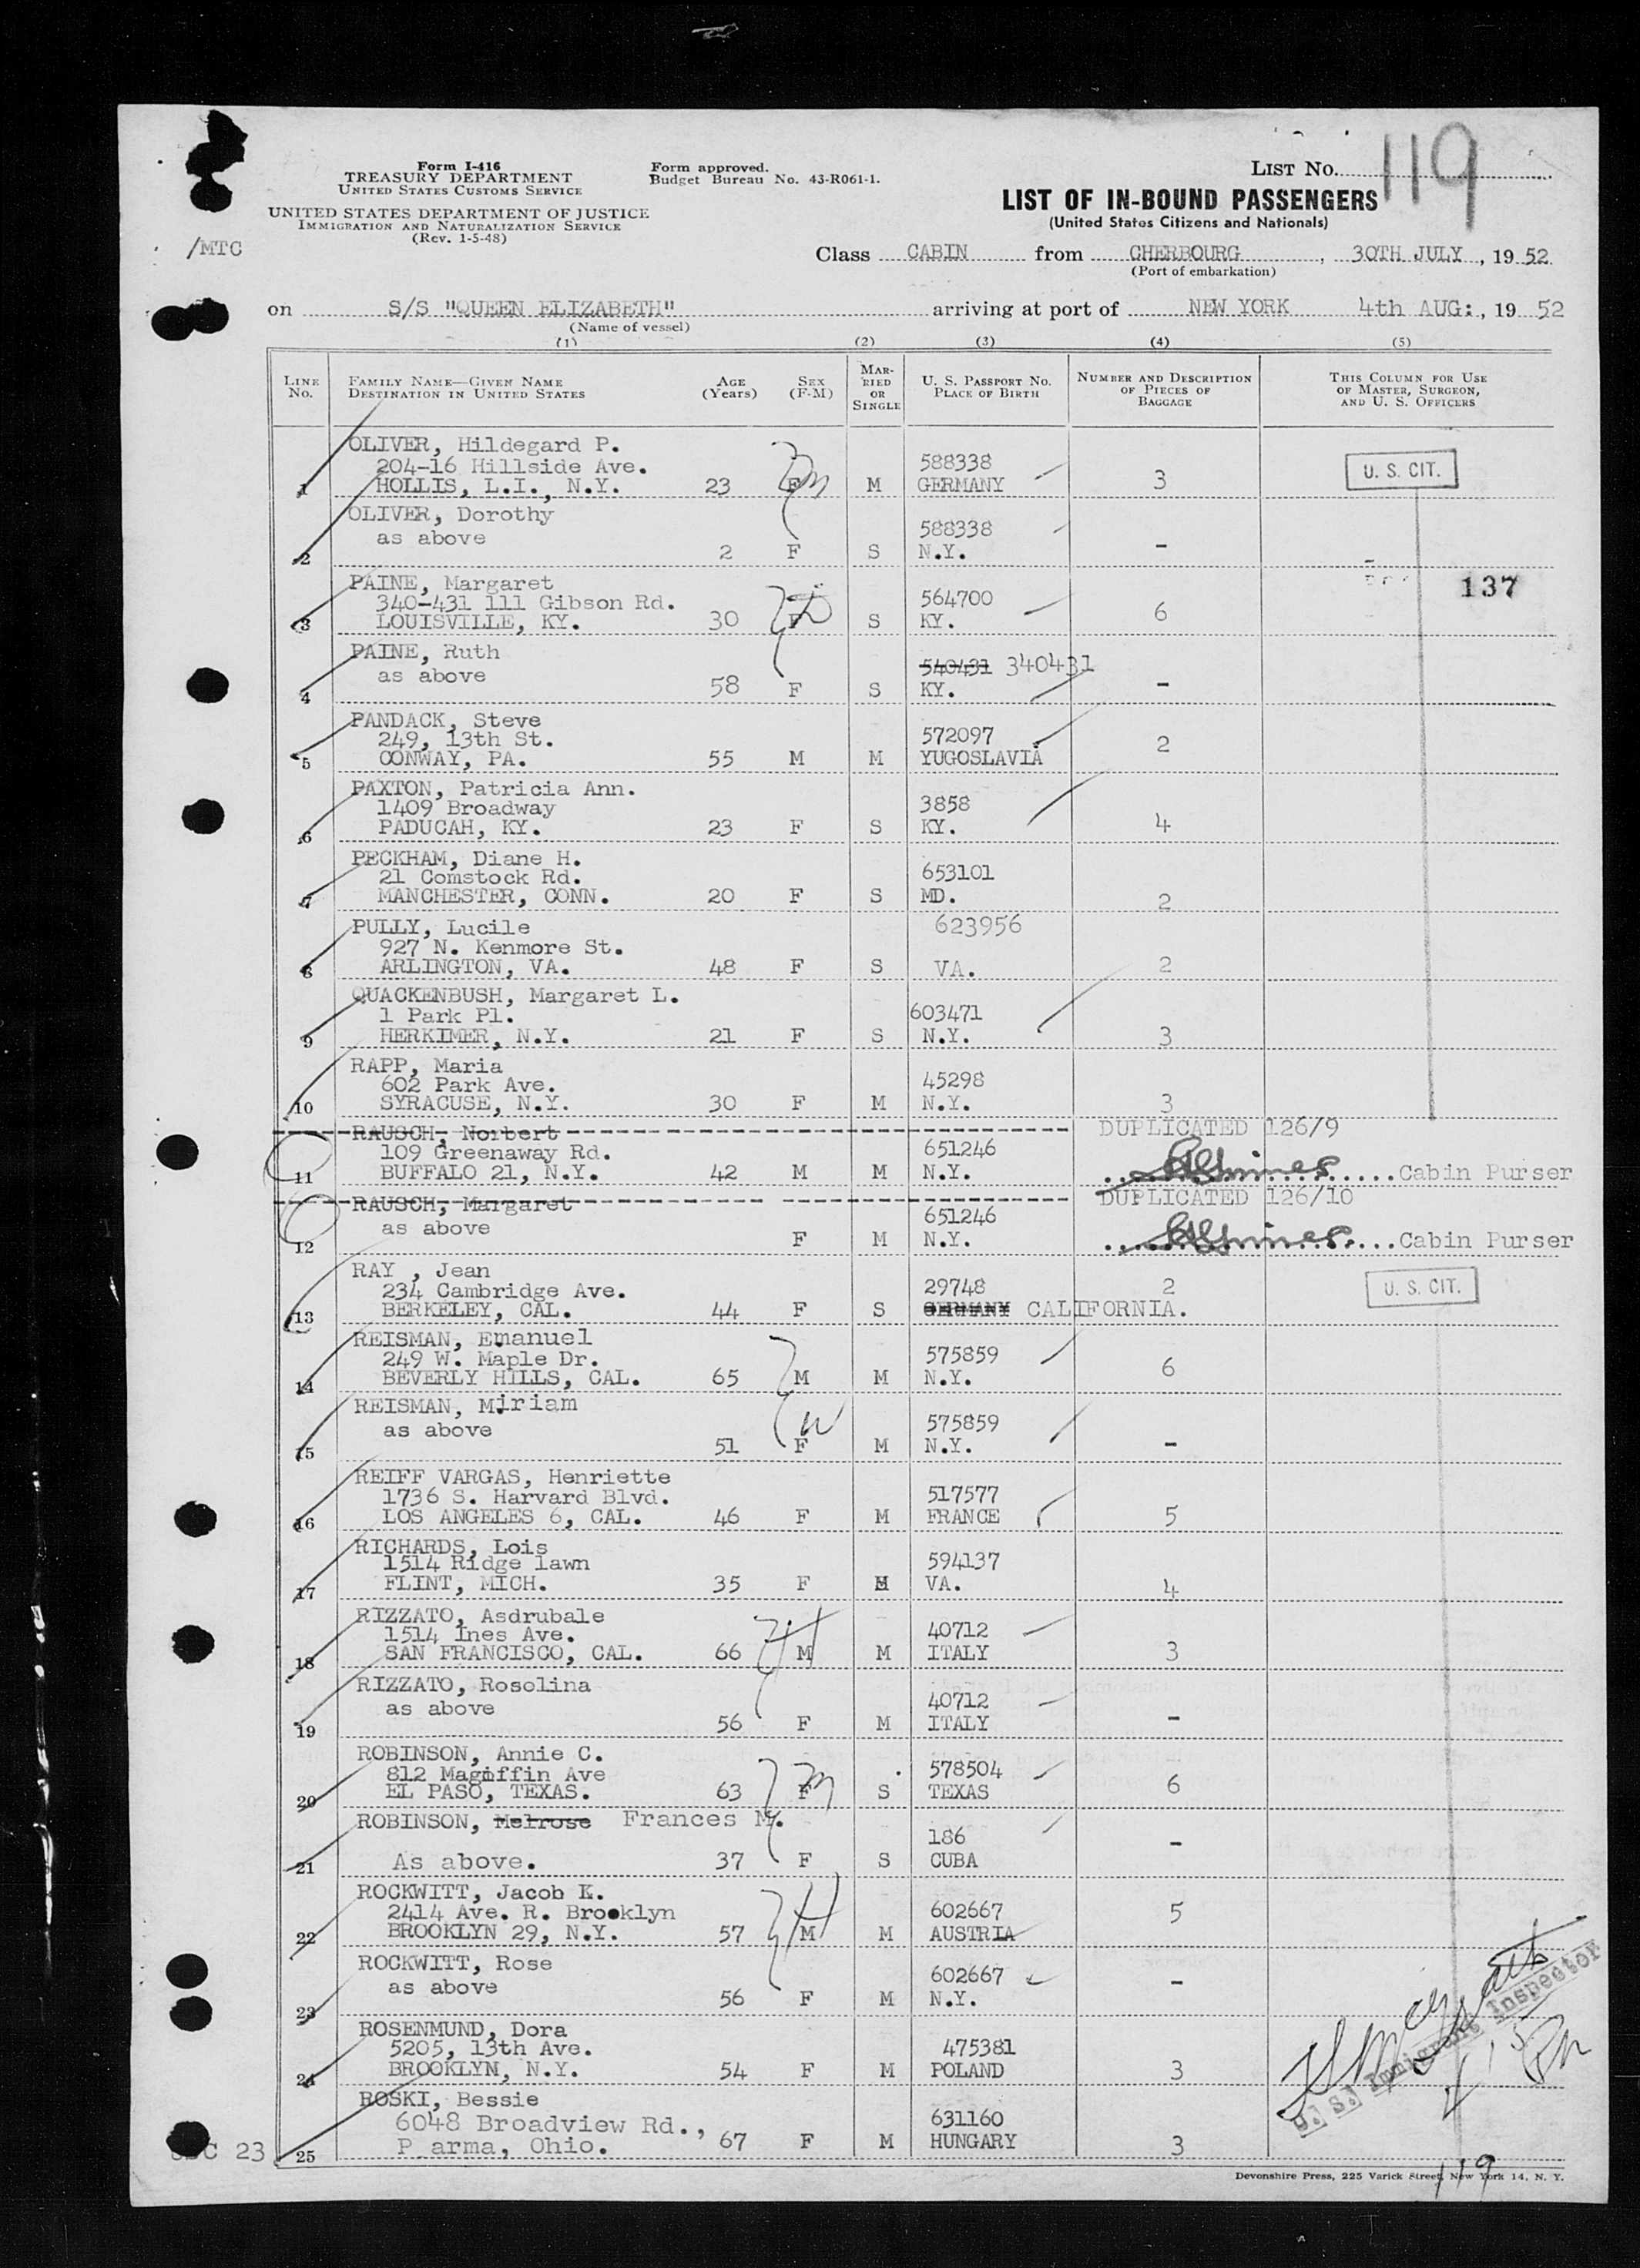 Form I-416
TREASURY DEPARTMENT
UNITED STATES CUSTOMS SERVICE
UNITED STATES DEPARTMENT OF JUSTICE
IMMIGRATION AND NATURALIZATION SERVICE
(Rev. 1-5-48)
Form approved.
Budget Bureau No. 43-R061-1.
LIST NO. 119
LIST OF IN-BOUND PASSENGERS
(United States Citizens and Nationals)
/MTC
Class CABIN from CHERBOURG, 30TH JULY, 19 52
(Port of embarkation)
on S/S "QUEEN ELIZABETH" arriving at port of NEW YORK 4th AUG:, 19 52
(Name of vessel)
(1) (2) (3) (4) (5)
LINE No.
FAMILY NAME—GIVEN NAME
DESTINATION IN UNITED STATES
AGE (Years)
SEX (F-M)
MARRIED OR SINGLE
U. S. PASSPORT NO.
PLACE OF BIRTH
NUMBER AND DESCRIPTION OF PIECES OF BAGGAGE
THIS COLUMN FOR USE OF MASTER, SURGEON, AND U. S. OFFICERS
OLIVER, Hildegard P.
204-16 Hillside Ave. 588338 U. S. CIT.
1 HOLLIS, L.I., N.Y. 23 F M GERMANY 3
OLIVER, Dorothy 588338
as above
2 2 F S N.Y. -
137
PAINE, Margaret
340-431 111 Gibson Rd. 564700
3 LOUISVILLE, KY. 30 F S KY. 6
PAINE, Ruth
as above 540431 340431
4 58 F S KY. -
PANDACK, Steve
249, 13th St. 572097
5 CONWAY, PA. 55 M M YUGOSLAVIA 2
PAXTON, Patricia Ann.
1409 Broadway 3858
6 PADUCAH, KY. 23 F S KY. 4
PECKHAM, Diane H.
21 Comstock Rd. 653101
7 MANCHESTER, CONN. 20 F S MD. 2
PULLY, Lucile 623956
927 N. Kenmore St.
8 ARLINGTON, VA. 48 F S VA. 2
QUACKENBUSH, Margaret L.
1 Park Pl. 603471
9 HERKIMER, N.Y. 21 F S N.Y. 3
RAPP, Maria
602 Park Ave. 45298
10 SYRACUSE, N.Y. 30 F M N.Y. 3
RAUSCH, Norbert DUPLICATED 126/9
109 Greenaway Rd. 651246
11 BUFFALO 21, N.Y. 42 M M N.Y. Cabin Purser
RAUSCH, Margaret DUPLICATED 126/10
as above 651246
12 F M N.Y. Cabin Purser
RAY , Jean
234 Cambridge Ave. 29748 2 U. S. CIT.
13 BERKELEY, CAL. 44 F S GERMANY CALIFORNIA.
REISMAN, Emanuel
249 W. Maple Dr. 575859
14 BEVERLY HILLS, CAL. 65 M M N.Y. 6
REISMAN, Miriam
as above 575859
15 51 F M N.Y. -
REIFF VARGAS, Henriette
1736 S. Harvard Blvd. 517577
16 LOS ANGELES 6, CAL. 46 F M FRANCE 5
RICHARDS, Lois
1514 Ridge lawn 594137
17 FLINT, MICH. 35 F M VA. 4
RIZZATO, Asdrubale
1514 Ines Ave. 40712
18 SAN FRANCISCO, CAL. 66 M M ITALY 3
RIZZATO, Rosolina
as above 40712
19 56 F M ITALY -
ROBINSON, Annie C.
812 Magiffin Ave 578504
20 EL PASO, TEXAS. 63 F S TEXAS 6
ROBINSON, Melrose Frances M.
186 -
21 As above. 37 F S CUBA
ROCKWITT, Jacob K.
2414 Ave. R. Brooklyn 602667 5
22 BROOKLYN 29, N.Y. 57 M M AUSTRIA
ROCKWITT, Rose
as above 602667 -
23 56 F M N.Y.
ROSENMUND, Dora
5205, 13th Ave. 475381
24 BROOKLYN, N.Y. 54 F M POLAND 3
U. S. Immigrant Inspector
ROSKI, Bessie
6048 Broadview Rd., 631160
25 P arma, Ohio. 67 F M HUNGARY 3
C 23
Devonshire Press, 225 Varick Street, New York 14, N. Y.
119